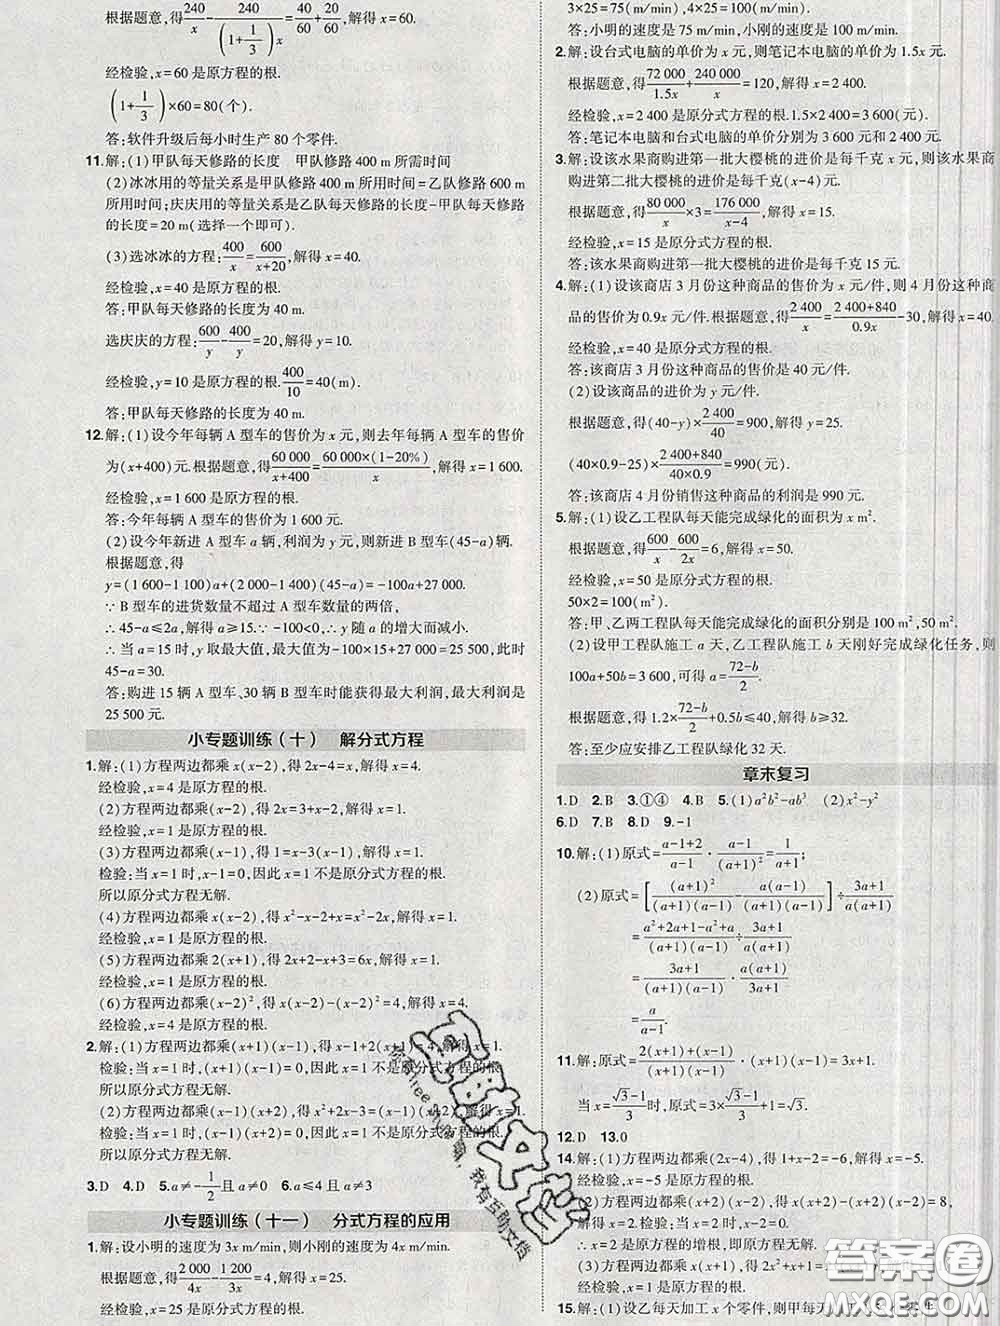 根据题意,得240/((1+1/3)x)=40/60+20/60,解得 x=60.
经检验,x=60 是原方程的根.
(1+1/3)×60=80(个).
答:软件升级后每小时生产 80 个零件.
11.解:(1)甲队每天修路的长度 甲队修路 400 m 所需时间
(2)冰冰用的等量关系是甲队修路 400 m 所用时间=乙队修路 600 m
所用时间;庆庆用的等量关系是乙队每天修路的长度-甲队每天修路
的长度=20 m(选择一个即可).
(3)选冰冰的方程:400/x=600/(x+20),解得 x=40.
经检验,x=40 是原方程的根.
答:甲队每天修路的长度为 40 m.
选庆庆的方程:600/y-400/y=20,解得 y=10.
经检验,y=10 是原方程的根.400/10=40(m).
答:甲队每天修路的长度为 40 m.
12.解:(1)设今年每辆 A 型车的售价为 x 元,则去年每辆 A 型车的售价
为(x+400)元.根据题意,得60 000/(x+400)=60 000×(1-20%)/x,解得 x=1 600.
经检验,x=1 600 是原方程的根.
答:今年每辆 A 型车的售价为 1 600 元.
(2)设今年新进 A 型车 a 辆,利润为 y 元,则新进 B 型车(45-a)辆.
根据题意,得
y=(1 600-1 100)a+(2 000-1 400)(45-a)=-100a+27 000.
∵ B 型车的进货数量不超过 A 型车数量的两倍,
∴ 45-a≤2a,解得 a≥15.∵ -100<0,∴ y 随 a 的增大而减小.
∴ 当 a=15 时,y 取最大值,最大值为-100×15+27 000=25 500,此时
45-a=30.
答:购进 15 辆 A 型车、30 辆 B 型车时能获得最大利润,最大利润是
25 500 元.
小专题训练(十) 解分式方程
1.解:(1)方程两边都乘 x(x-2),得 2x-4=x,解得 x=4.
经检验,x=4 是原方程的根.
(2)方程两边都乘(x-2),得 2x=3+x-2,解得 x=1.
经检验,x=1 是原方程的根.
(3)方程两边都乘(x-1),得 1=x-1+1,解得 x=1.
检验:当 x=1 时,x-1=0,因此 x=1 不是原分式方程的根.
所以原分式方程无解.
(4)方程两边都乘 x(x-2),得 x²-x-2+x=x²-2x,解得 x=1.
经检验,x=1 是原方程的根.
(5)方程两边都乘 2(x+1),得 2x+2-x-3=6x,解得 x=
经检验,x= 是原方程的根.
(6)方程两边都乘(x-2)²,得 x(x-2)-(x-2)²=4,解得 x=4.
经检验,x=4 是原方程的根.
2.解:(1)方程两边都乘(x+1)(x-1),得 x-1+2(x+1)=4,解得 x=1.
检验:当 x=1 时,(x+1)(x-1)=0,因此 x=1 不是原分式方程的根.
所以原分式方程无解.
(2)方程两边都乘(x-1)(x+2),得 x²+2x=x²+x-2+3,解得 x=1.
检验:当 x=1 时,(x-1)(x+2)=0,因此 x=1 不是原分式方程的根.
所以原分式方程无解.
3.D 4.D 5.a≠-1/2且 a≠0 6.a≤4 且 a≠3
小专题训练(十一) 分式方程的应用
1.解:设小明的速度为 3x m/min,则小刚的速度为 4x m/min.
根据题意,得2 000/4x-1 200/3x=4,解得 x=25.
经检验,x=25 是原分式方程的根.
3×25=75(m/min),4×25=100(m/min).
答:小明的速度是 75 m/min,小刚的速度是 100 m/min.
2.解:设台式电脑的单价为 x 元,则笔记本电脑的单价为 1.5x 元.
根据题意,得72 000/1.5x+240 000/x=120,解得 x=2 400.
经检验,x=2 400 是原分式方程的根.1.5×2 400=3 600(元).
答:笔记本电脑和台式电脑的单价分别为 3 600 元和 2 400 元.
3.解:设该水果商购进第一批大樱桃的进价是每千克 x 元,则该水果
商购进第二批大樱桃的进价是每千克(x-4)元.
根据题意,得80 000/x×3=176 000/(x-4),解得 x=15.
经检验,x=15 是原分式方程的根.
答:该水果商购进第一批大樱桃的进价是每千克 15 元.
4.解:(1)设该商店 3 月份这种商品的售价为 x 元/件,则 4 月份这种商
品的售价为0.9x 元/件.根据题意,得2 400/x=(2 400+840)/0.9x-30,解得 x=40.
经检验,x=40 是原分式方程的根.
答:该商店 3 月份这种商品的售价是 40 元/件.
(2)设该商品的进价为 y 元/件.
根据题意,得(40-y)×2 400/40=900,解得 y=25.
(40×0.9-25)×(2 400+840)/(40×0.9)=990(元).
答:该商店 4 月份销售这种商品的利润是 990 元.
5.解:(1)设乙工程队每天能完成绿化的面积为 x m².
根据题意,得600/x-600/2x=6,解得 x=50.
经检验,x=50 是原分式方程的根.
50×2=100(m²).
答:甲、乙两工程队每天能完成绿化的面积分别是 100 m²,50 m².
(2)设甲工程队施工 a 天,乙工程队施工 b 天刚好完成绿化任务,则
100a+50b=3 600,可得 a=(72-b)/2.
根据题意,得 1.2×(72-b)/2+0.5b≤40,解得 b≥32.
答:至少应安排乙工程队绿化 32 天.
章末复习
1.D 2.B 3.①④ 4.B 5.(1)a²b²-ab³ (2)x²-y²
6.D 7.B 8.D 9.-1
10.解:(1)原式=(a-1+2)/(a-1)·(a-1)/(a+1)²=1/(a+1);
(2)原式=[(a+1)²/((a+1)(a-1))-a(a-1)/((a+1)(a-1))]÷(3a+1)/(a(a+1))
=(a²+2a+1-a²+a)/((a+1)(a-1))÷(3a+1)/(a(a+1))
=(3a+1)/((a+1)(a-1))·a(a+1)/(3a+1)
=a/(a-1).
11.解:原式=(2(x+1)+(x-1))/((x-1)(x+1))·(x+1)(x-1)=3x+1.
当 x=(√3-1)/3时,原式=3×(√3-1)/3+1=√3.
12.D 13.0
14.解:(1)方程两边都乘(2x-4),得 1+2x-4=-6,解得 x=-5.
经检验,x=-5 是原方程的根.
(2)方程两边都乘(x+2)(x-2),得 x(x+2)-(x+2)(x-2)=8,
解得 x=2.检验:当 x=2 时,(x+2)(x-2)=0.
∴ x=2 是原方程的增根,即原方程无解.
(3)方程两边都乘(x+2)(
经检验,x=1 是原方程的根.
15.解:(1)设乙每天加工 x 个零件,则甲每天加工1.5x 个零件.
互助文档
我有互助文档
答案圈